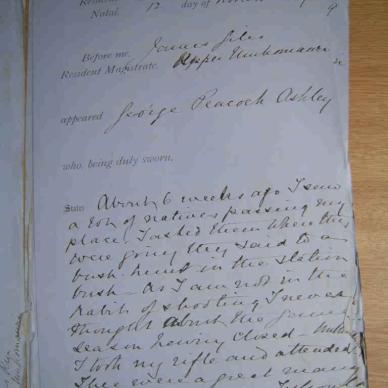 Natal, 12 day of
Before me, James Giles
Resident Magistrate, Upper Umkomanzi
appeared George Peacock Ashley
who, being duly sworn,
States About 6 weeks ago I saw
a lot of natives passing my
place, I asked them where they
were going they said to a
bush hunt in the station
bush – As I am not in the
habit of shooting I never
thought about the game
season having closed –
I took my rifle and attended
There were a great many